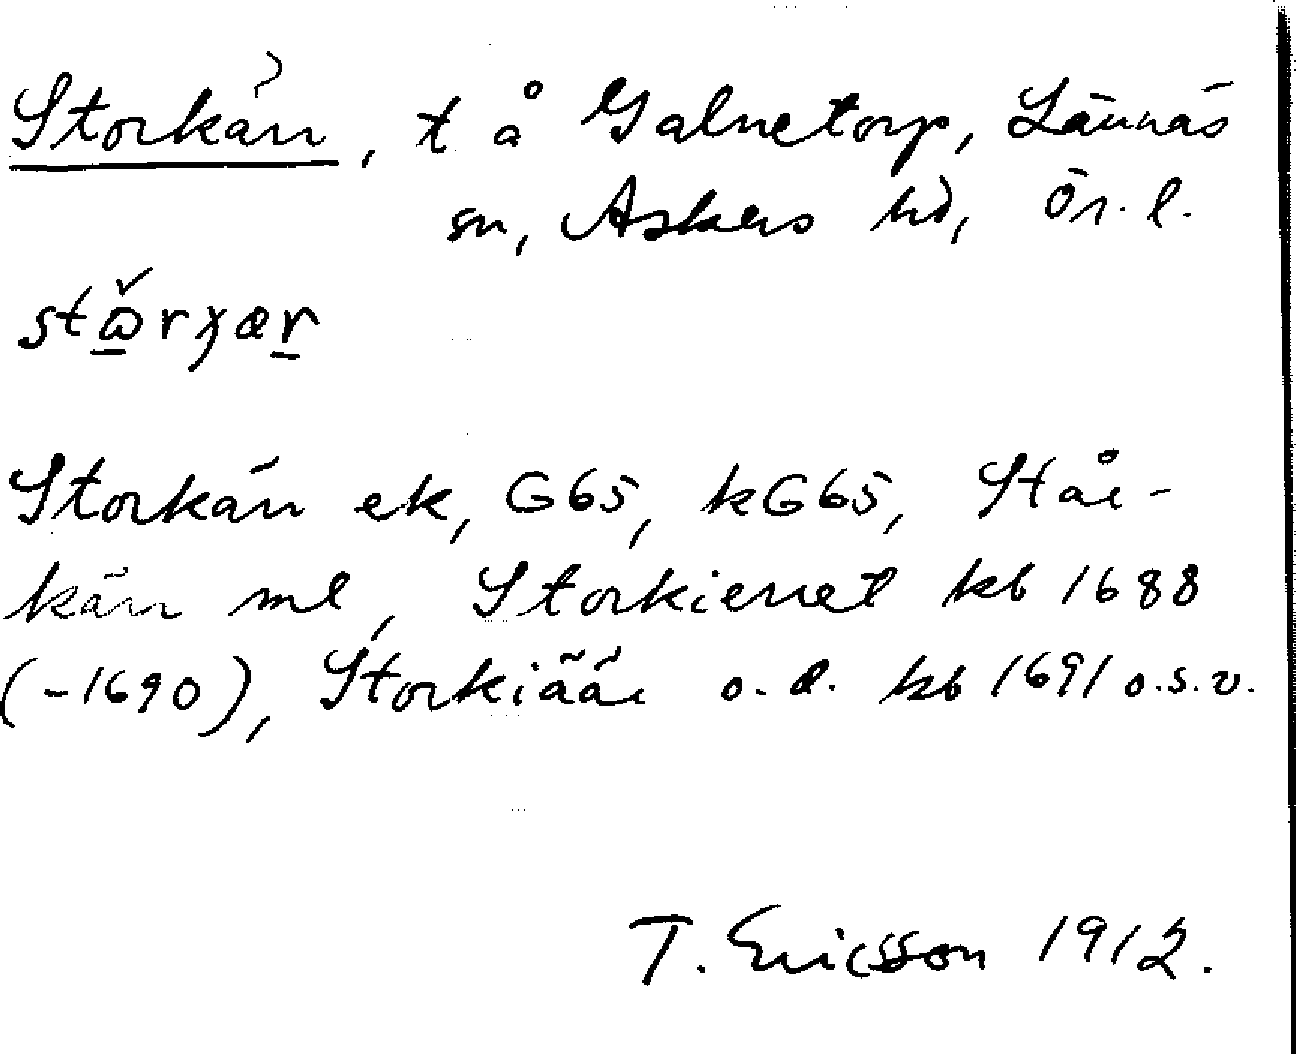 Storkärr, t å Galnetorp, Lännäs
sn, Askers hd, Ör. l.
Storkärr ek, G65, kG65, Står-
kärr ml, Storkierret kb 1688
(-1690), Storkiäär o. d. kb 1691 o.s.v.
T. Ericsson 1912.